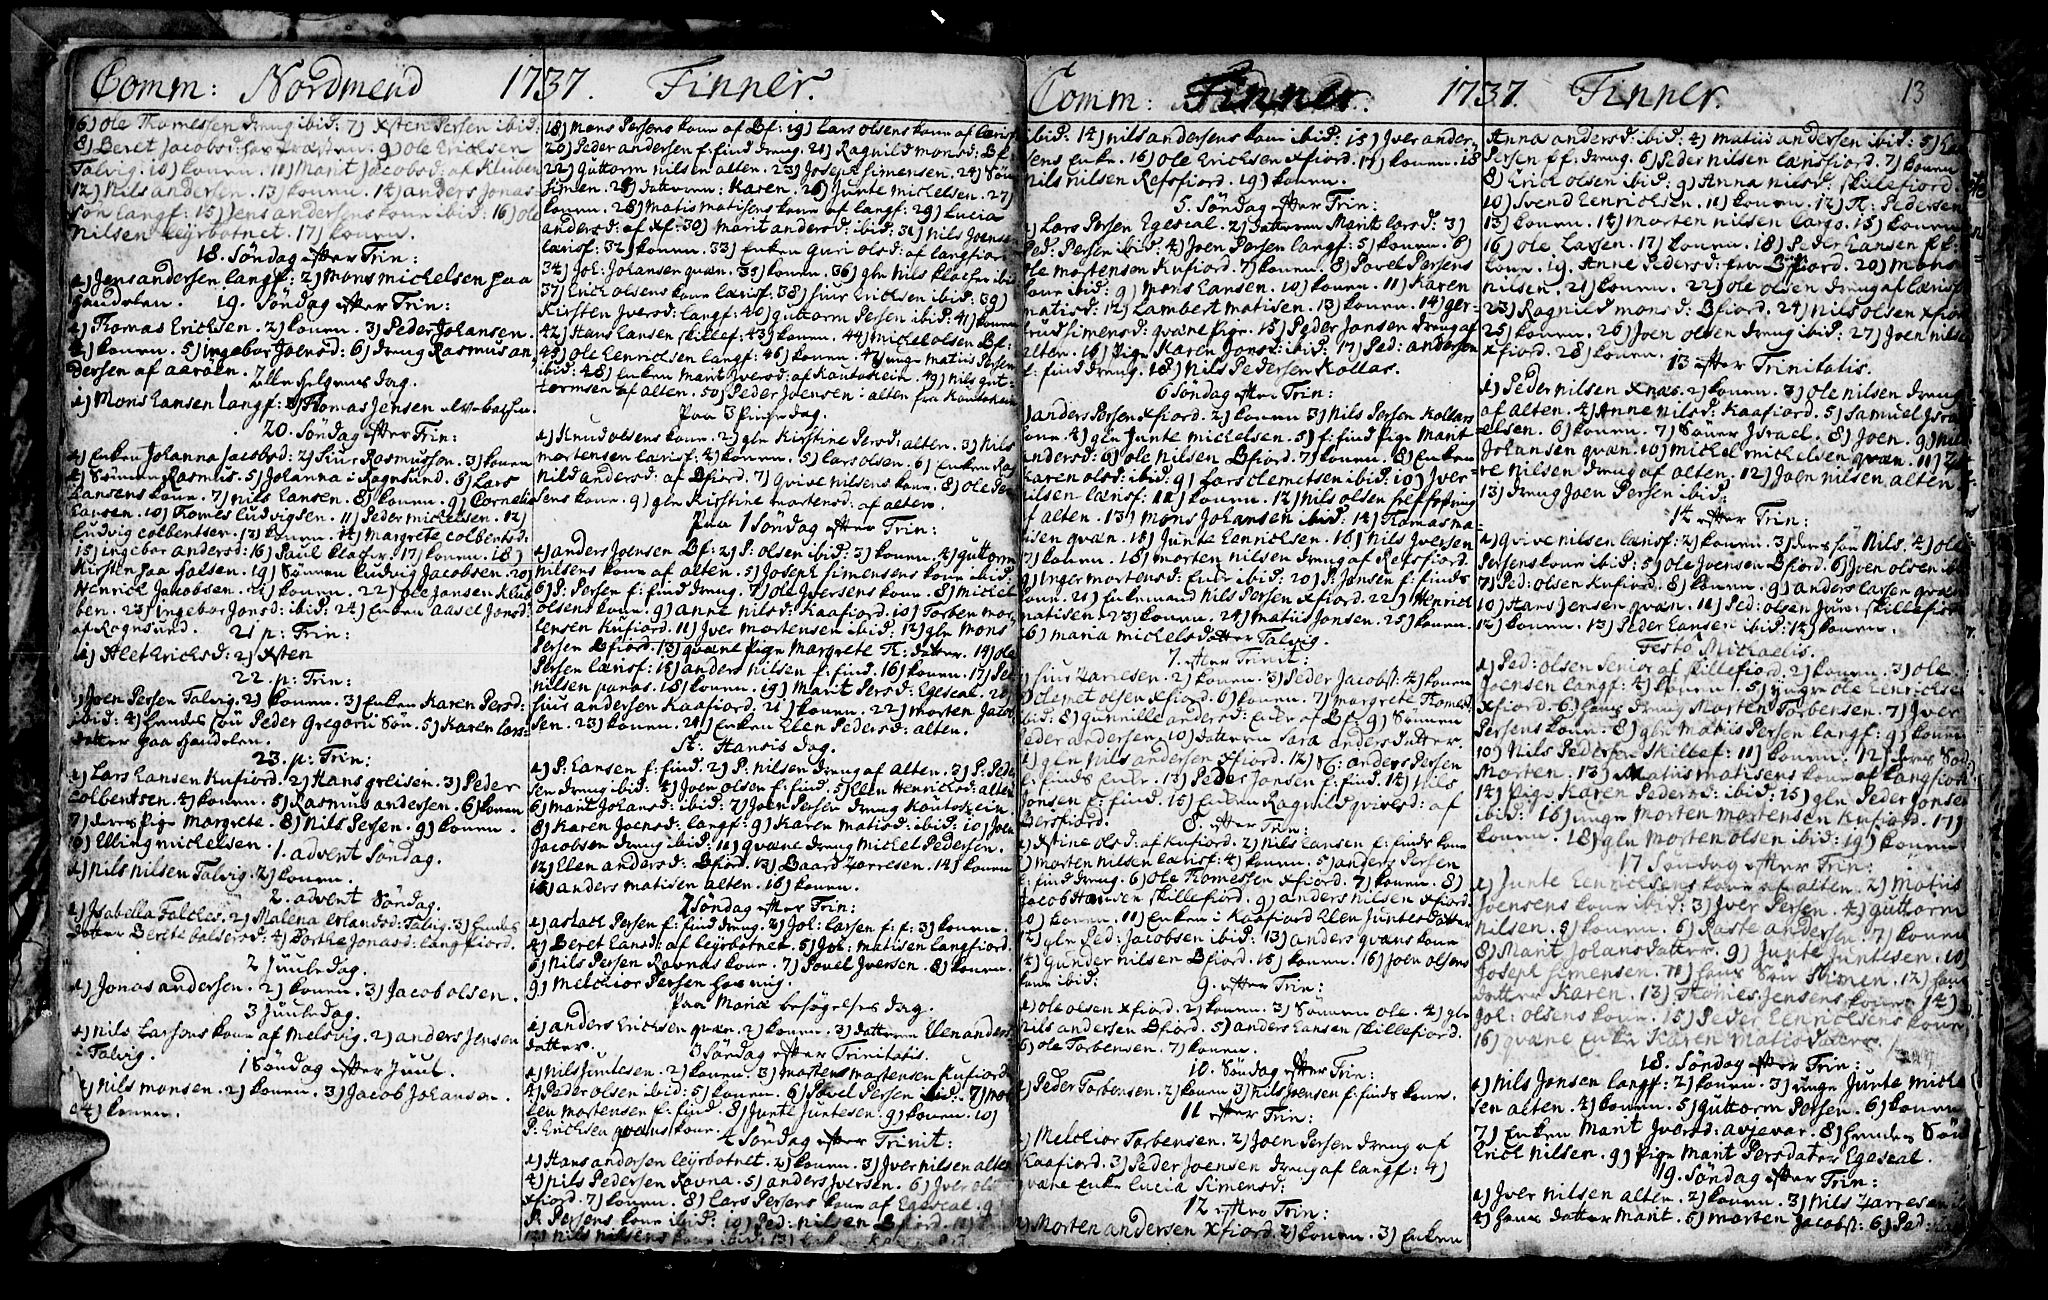 Comm: Nordmend 1737. Finner.
6) Ole Thomessen dreng ibid: 7) Xsten Persen ibid:
8) Beret Jacobsd: hos Præsten. 9) Ole Erichsen
Talvig. 10) konen. 11) Marit Jacobsd: af Kluben
12) Nils andersen. 13) konen. 14) anders Jonas-
søn langf: 15) Jens andersens kone ibid: 16) Ole
Nilsen leÿrbotnet. 17) konen.
18. Søndag efter Trin:
1) Jens andersen langf: 2) Mons Michelsen paa
Handselen. 19. Søndag efter Trin:
1) Thomas Erichsen. 2) konen. 3) Peder Johansen.
4) konen. 5) Ingebor Joensd: 6) dreng Rasmus an
dersen af aarøen.
Alle helgens dag.
1) Mons Hansen langf: 2) Thomas Jensen elvebachen.
20. Søndag efter Trin:
1) Enken Johanna Jacobsd: 2) Siur Rasmusson. 3) konen
4) Sønnen Rasmus. 5) Johanna i Ragnsund. 6) Lars
Hansens kone. 7) Nils Hansen. 8) konen. 9) Cornelia
Hansen. 10) Thomes Ludvigsen. 11) Peder Michelsen. 12)
Ludvig Colbentsen. 13) konen. 14) Margrete Colbentsd:
15) Ingebor andersd: 16) Paul Klacher. 17) konen. 18)
Kirsten paa Halsen. 19) Sønnen Ludvig Jacobsen. 20)
Henrich Jacobsen. 21) konen. 22) Ole Jansen Klub-
ben. 23) Ingebor Jonsd: ibid: 24) Enken Aasel Jonsd:
af Ragnsund.
21 p: Trin:
1) Alet Erichsd: 2) Xsten
22. p: Trin:
1) Joen Persen Talvig. 2) konen. 3) Enken Karen Persd:
ibid: 4) hendes søn Peder Gregorii Søn. 5) Karen lars-
datter paa Handselen.
23. p: Trin:
1) Lars Hansen Kufiord. 2) Hans greisen. 3) Peder
Colbentsen. 4) konen. 5) Rasmus andersen. 6) konen
7) deres pige Margrete. 8) Nils Persen. 9) konen.
10) Elling Michelsen.
1. advent Søndag.
1) Nils Nilsen Talvig. 2) konen.
2. advent Søndag.
1) Isabella Falches. 2) Malena Erlandsd: Talvig. 3) hendes
datter Berete baldersd: 4) Dorthe Jonasd: langfiord.
2 Juuledag.
1) Jonas andersen. 2) konen. 3) Jacob olsen.
3 Juuledag.
1) Nils Larsens kone af Melsvig. 2) anders Jensen
i Talvig.
1 Søndag efter Juul.
1) Nils Monsen. 2) konen. 3) Jacob Johanson.
4) konen.
18) Mons Persens kone af Bf: 19) Lars olsens kone af Lærisf:
20) Peder andersen f: find dreng. 21) Ragnild Monsd: Bf:
22) Guttorm Nilsen alten. 23) Joseph Simensen. 24) Søn
Simen. 25) datteren: Karen. 26) Junte Michelsen. 27)
konen. 28) Matis Matisens kone af langf: 29) Lucia
andersd: af Xf: 30) Marit andersd: ibid: 31) Nils Joensen
lærisf: 32) konen. 33) Enken Guri olsd: af langfiord
34) Joh: Johansen qvæn. 35) konen. 36) gln Nils Klacher ibid
37) Erich olsens kone lærisf: 38) Siur Erichsen ibid: 39)
Kirsten Jversd: langf: 40) Guttorm Persen ibid: 41) konen
42) Hans Hansen skillef: 43) konen. 44) Michel olsen Bf:
45) Ole Henrichsen langf: 46) konen. 47) unge Matis Persen
ibid: 48) Enken Marit Jversd: af Kautokein. 49) Nils Gut-
tormsen af alten. 50) Peder Joensen: alten fra Kautokein
Paa 3 Pingedag.
1) Knud olsens kone. 2) gln Kirstine Persd: alten. 3) Nils
Mortensen lærisf: 4) konen. 5) Lars olsen. 6) Enken Rag
nild andersd: af Bfiord. 7) Qvive Nilsens kone. 8) Ole Jen
sens kone. 9) gln Kirstine Mortensd: af alten.
Paa 1 Søndag efter Trin:
1) anders Joensen Bf: 2) P: olsen ibid: 3) konen. 4) Guttorm
Nilsens kone af alten. 5) Joseph Simensens kone ibid:
6) P: Persen f: find dreng. 7) Ole Jversens kone. 8) Michel
olsens kone. 9) anne Nilsd: Kaafiord. 10) Torben Mor-
tensen Kufiord. 11) Jver Mortensen ibid: 12) gln Mons
Persen Bfiord. 13) qvæne pige Margrete H: datter. 14) Ole
Persen lærisf: 15) anders Nilsen f: find. 16) konen. 17) Ped
Nilsen panas. 18) konen. 19) Marit Persd: Egeseal. 20)
Siur andersen Kaafiord. 21) konen. 22) Morten Jacob
sen. 23) konen. 24) Enken Elen Pedersd: alten.
St: Hansis dag.
1) P: Hansen f: find. 2) P: Nilsen dreng af alten. 3) P: Peder
sen dreng ibid: 4) Joen olsen f: find. 5) Elen Henrichsd: alten
6) Marit Johansd: ibid: 7) Joen Persen dreng Kautokein
8) Karen Joensd: langf: 9) Karen Matisd: ibid: 10) Joen
Jacobsen dreng ibid: 11) qvæne dreng Michel Pedersen.
12) Elen andersd: Bfiord. 13) Baard Zarresen. 14) konen
15) anders Matisen alten. 16) konen.
2 Søndag efter Trin:
1) aslach Persen f: find dreng. 2) Joh: Larsen f: f: 3) konen.
4) Beret Hansd: af leÿrbotnet. 5) Joh: Matisen langfiord.
6) Nils Persen Ravnas kone. 7) Povel Jversen. 8) konen.
9) Melchior Persen hos mig.
Paa Mariæ besøgelses dag.
1) anders Erichsen qvæn. 2) konen. 3) datteren Elen anders
datter.
3 Søndag efter Trinitatis.
1) Nils Juntesen. 2) konen. 3) Mortens Mortensen Kufiord
4) Peder olsen ibid: 5) konen. 6) Povel Persen ibid: 7) Mor
ten Mortensen f: find. 8) Junte Juntesen. 9) konen. 10)
P: Erichsen qvæns kone.
4 Søndag efter Trinit:
1) Hans andersen leÿrbotnet. 2) konen. 3) Jver Nilsen alten
4) Nils Pedersen Ravna. 5) anders Jversen. 6) Jver ols
Xfiord. 7) konen. 8) Lars Persens kone af Egeseal. 9
P: Persens kone ibid: 10) Ped: Nilsen Bfiord.
12) Nils Nilsens kone ibid: 13)
Comm: Finner. 1737. Finner. 13
ibid: 14) Nils andersens kone ibid: 15) Jver ander-
sens Enke. 16) Ole Erichsen Xfiord. 17) konen. 18
Nils Nilsen Refsfiord. 19) konen.
5. Søndag efter Trin:
1) Lars Persen Egeseal. 2) datteren Marit larsd: 3)
Ped: Persen ibid: 4) Joen Persen langf: 5) konen. 6)
Ole Mortensen Kufiord. 7) konen. 8) Povel Persens
kone ibid: 9) Mons Hansen. 10) konen. 11) Karen
Matisd: 12) Lambert Matisen. 13) konen. 14) Ger-
trud Simensd: qvæne pige. 15) Peder Jonsen dreng af
alten. 16) pige Karen Jonsd: ibid: 17) Ped: andersen
f: find dreng. 18) Nils Pedersen Kollar.
6 Søndag efter Trin:
1) anders Persen Xfiord. 2) konen 3) Nils Persen Kollars
kone. 4) gln Junte Michelsen. 5) f: find pige Marit
andersd: 6) Ole Nilsen Bfiord. 7) konen. 8) Enken
Karen olsd: ibid: 9) Lars Clemetsen ibid: 10) Jver
Nilsen lærisf: 11) konen. 12) Nils olsen
af alten. 13) Mons Johansen ibid: 14) Thomas Ma
tisen qvæn. 15) Junte Henrichsen. 16) Nils Jversen
17) konen. 18) Morten Nilsen dreng af Refsfiord.
19) Inger Mortensd: Enke ibid: 20) P: Jonsen f: finds
kone. 21) Enkemand Nils Persen Xfiord. 22) Henrich
Matisen. 23) konen. 24) Matis Jonsen. 25) konen.
26) Maria Michelsdatter Talvig.
7. efter Trinit:
1) Siur Zarresen. 2) konen. 3) Peder Jacobs: 4) konen
5) Clemet olsen Xfiord. 6) konen. 7) Margrete Thomesd
ibid: 8) Gunnille andersd: Enke af Bf: 9) Sønnen
Peder andersen. 10) datteren Sara anders datter.
11) gln Nils andersen Xfiord. 12) N: anders Persen
f: finds Enke. 13) Peder Jonsen f: find. 14) Nils
Jonsen f: find. 15) Enken Ragnild Qvivesd: af
Bersfiord.
8. efter Trin:
1) Xstine olsd: af Kufiord. 2) Nils Hansen f: finds kone
3) Morten Nilsen lærisf: 4) konen. 5) anders Persen
f: find dreng. 6) Ole Thomessen Xfiord. 7) konen. 8)
Jacob Hansen Skillefiord. 9) anders Nilsen Xfiord
10) konen. 11) Enken i Kaafiord Elen Juntesdatter
12) gln Ped: Jacobsen ibid: 13) anders qvæns kone
14) Gunder Nilsen Bfiord. 15) konen. 16) Joen olsens
kone ibid:
9. efter Trin:
1) Ole olsen Xfiord. 2) konen. 3) Sønnen Ole. 4) gln
Nils andersen Bfiord. 5) anders Hansen skillefiord.
6) Ole Torbensen. 7) konen.
10. Søndag efter Trin:
1) Peder Torbensen. 2) konen 3) Nils Joensen f: finds kone.
11 efter Trin:
1) Melchior Torbensen. 2) Joen Persen dreng af
Kaafiord. 3) Peder Joensen dreng af langf: 4)
qvæne Enke Lucia Simensd:
12 efter Trin:
1) Morten andersen Xfiord 2) konen. 3) Enken
Anna andersd: ibid: 4) Matis andersen ibid: 5)
Persen f f: dreng. 6) Peder Nilsen lærisfiord. 7) konen
8) Erich olsen ibid: 9) Anna Nilsd: Skillefiord.
10) Svend Henrichsen. 11) konen. 12) H: Pedersen
13) konen. 14) Morten Nilsen Largo. 15) konen
16) Ole Larsen. 17) konen. 18) Peder Hansen f f:
kone. 19. Anne Pedersd: Bfiord. 20) Mons
Nilsen. 21) konen. 22) Ole olsen dreng af lærisf
23) Ragnild Monsd: Bfiord. 24) Nils olsen Xfiord
25) konen. 26) Joen olsen dreng ibid: 27) Joen Nilsen
Xfiord. 28) konen.
13 efter Trinitatis.
1) Peder Nilsen Xnæs. 2) konen. 3) Ole Nilsen dreng
af alten. 4) Anne Nilsd: Kaafiord. 5) Samuel Isra
elsen. 6) konen. 7) Sønen Israel. 8) Joen. 9) Nils
Johansen qvæn. 10) Michel Michelsen qvæn. 11)
re Nilsen dreng af alten. 12) Joen Nilsen alten
13) dreng Joen Persen ibid:
14 efter Trin:
1) Qvive Nilsen lærisf: 2) konen. 3) deres søn Nils. 4) Ole
Persens kone ibid: 5) Ole Joensen Bfiord. 6) Joen olsen ib
7) Ped: olsen Kufiord. 8) konen. 9) anders Larsen qvæn
10) Hans Jensen qvæn. 11) Ped: olsen Jun: skillefiord
12) konen. 13) Peder Hansen ibid: 14) konen.
Festo Michaelis.
1) Ped: olsen Senior af skillefiord. 2) konen. 3) Ole
Joensen langf: 4) konen. 5) yngre Ole Henrichsen
Xfiord. 6) hans dreng Morten Torbensen. 7) Jver
Persens kone. 8) gln Matis Persen langf: 9) konen
10) Nils Pedersen Skillef: 11) konen. 12) deres Søn
Morten. 13) Matis Matisens kone af langfiord
14) pige Karen Pedersd: ibid: 15) gln Peder Jonsen
ibid: 16) unge Morten Mortensen Kufiord. 17)
konen. 18) gln Morten olsen ibid: 19) konen
17 Søndag efter Trin:
1) Junte Henrichsens kone af alten. 2) Matis
Joensens kone ibid: 3) Jver Persen. 4) Guttorm
Nilsen. 5) konen. 6) Raste andersen. 7) konen
8) Marit Johans datter. 9) Junte Juntesen. 10)
Joseph Simensen. 11) hans Søn Simen. 12) hans
datter Karen. 13) Thomes Jensens kone. 14)
Joh: olsens kone. 15) Peder Henrichsens kone
16) qvæne Enke Karen Matis datter.
18. Søndag efter Trin:
1) Nils Jonsen langf: 2) konen. 3) unge Junte Miche
sen alten. 4) konen. 5) Guttorm Persen. 6) konen
7) Enken Marit Jversd: avjevar. 8) hendes Søn
Erich Nilsen. 9) pige Marit Persdater Egeseal.
19. Søndag efter Trin:
1) Jver Nilsen alten. 2) konen. 3) Nils Zarresen
4) hans datter Marit. 5) Morten Jacobs: 6) Ped: